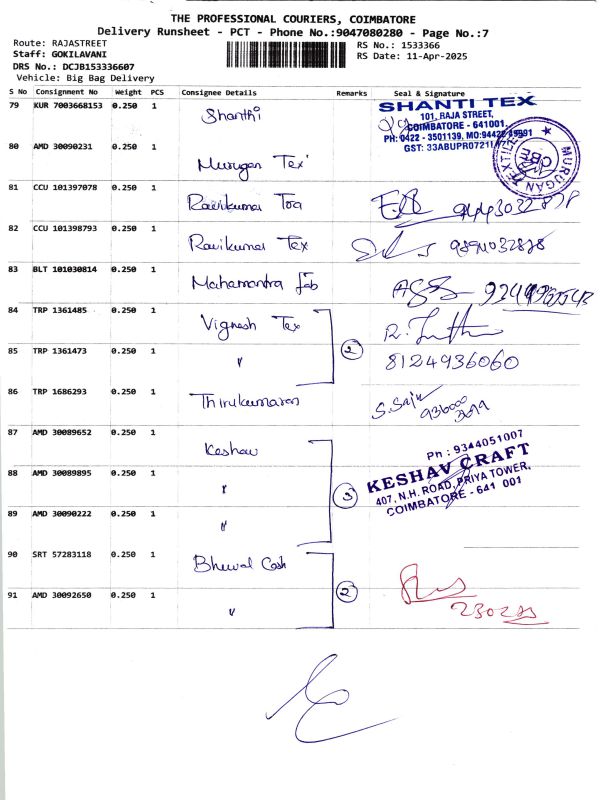 THE PROFESSIONAL COURIERS, COIMBATORE
Delivery Runsheet - PCT - Phone No.:9047080280 - Page No.:7
Route: RAJASTREET
Staff: GOKILAVANI
DRS No.: DCJB153336607
Vehicle: Big Bag Delivery
RS No.: 1533366
RS Date: 11-Apr-2025
S No Consignment No Weight PCS Consignee Details Remarks Seal & Signature
79 KUR 7003668153 0.250 1 Shanthi
SHANTI TEX
101, RAJA STREET,
COIMBATORE - 641001.
PH: 0422 - 3501139, MO:94422
GST: 33ABUPR0721
MURUGAN TEXTILE
CBE
80 AMD 30090231 0.250 1 Murugan Tex
81 CCU 101397078 0.250 1 Ravikumar
82 CCU 101398793 0.250 1 Ravikumar Tex
83 BLT 101030814 0.250 1 Mahamantra Fab
84 TRP 1361485 0.250 1 Vignesh Tex
85 TRP 1361473 0.250 1 〃 2 8124936060
86 TRP 1686293 0.250 1 Thirukumaran S. Saju
87 AMD 30089652 0.250 1 Keshav
88 AMD 30089895 0.250 1 〃 3
Ph : 9344051007
KESHAV CRAFT
407, N.H. ROAD, PRIYA TOWER,
COIMBATORE - 641 001
89 AMD 30090222 0.250 1 〃
90 SRT 57283118 0.250 1 Cash
91 AMD 30092650 0.250 1 〃 2